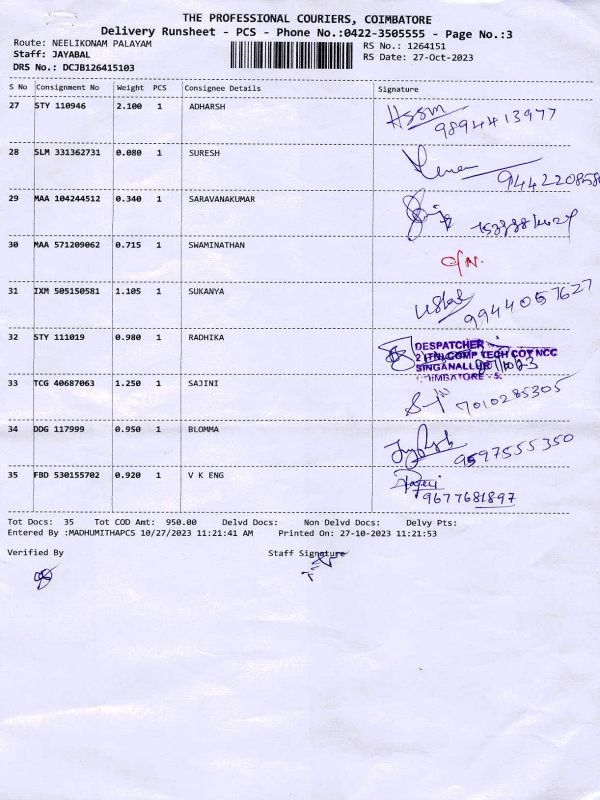 THE PROFESSIONAL COURIERS, COIMBATORE
Delivery Runsheet - PCS - Phone No.:0422-3505555 - Page No.:3
Route: NEELIKONAM PALAYAM
RS No.: 1264151
Staff: JAYABAL
RS Date: 27-Oct-2023
DRS No.: DCJB126415103
S No Consignment No Weight PCS Consignee Details Signature
27 STY 110946 2.100 1 ADHARSH
9894413977
28 SLM 331362731 0.080 1 SURESH
944220858
29 MAA 104244512 0.340 1 SARAVANAKUMAR
30 MAA 571209062 0.715 1 SWAMINATHAN
31 IXM 505150581 1.105 1 SUKANYA
9944057627
32 STY 111019 0.980 1 RADHIKA
DESPATCHER
2 (TN) COMP TECH COY NCC
SINGANALLUR
COIMBATORE - 5
33 TCG 40687063 1.250 1 SAJINI
7010285305
34 DDG 117999 0.950 1 BLOMMA
9597555350
35 FBD 530155702 0.920 1 V K ENG
9677681897
Tot Docs: 35 Tot COD Amt: 950.00 Delvd Docs: Non Delvd Docs: Delvy Pts:
Entered By :MADHUMITHAPCS 10/27/2023 11:21:41 AM Printed On: 27-10-2023 11:21:53
Verified By Staff Signature